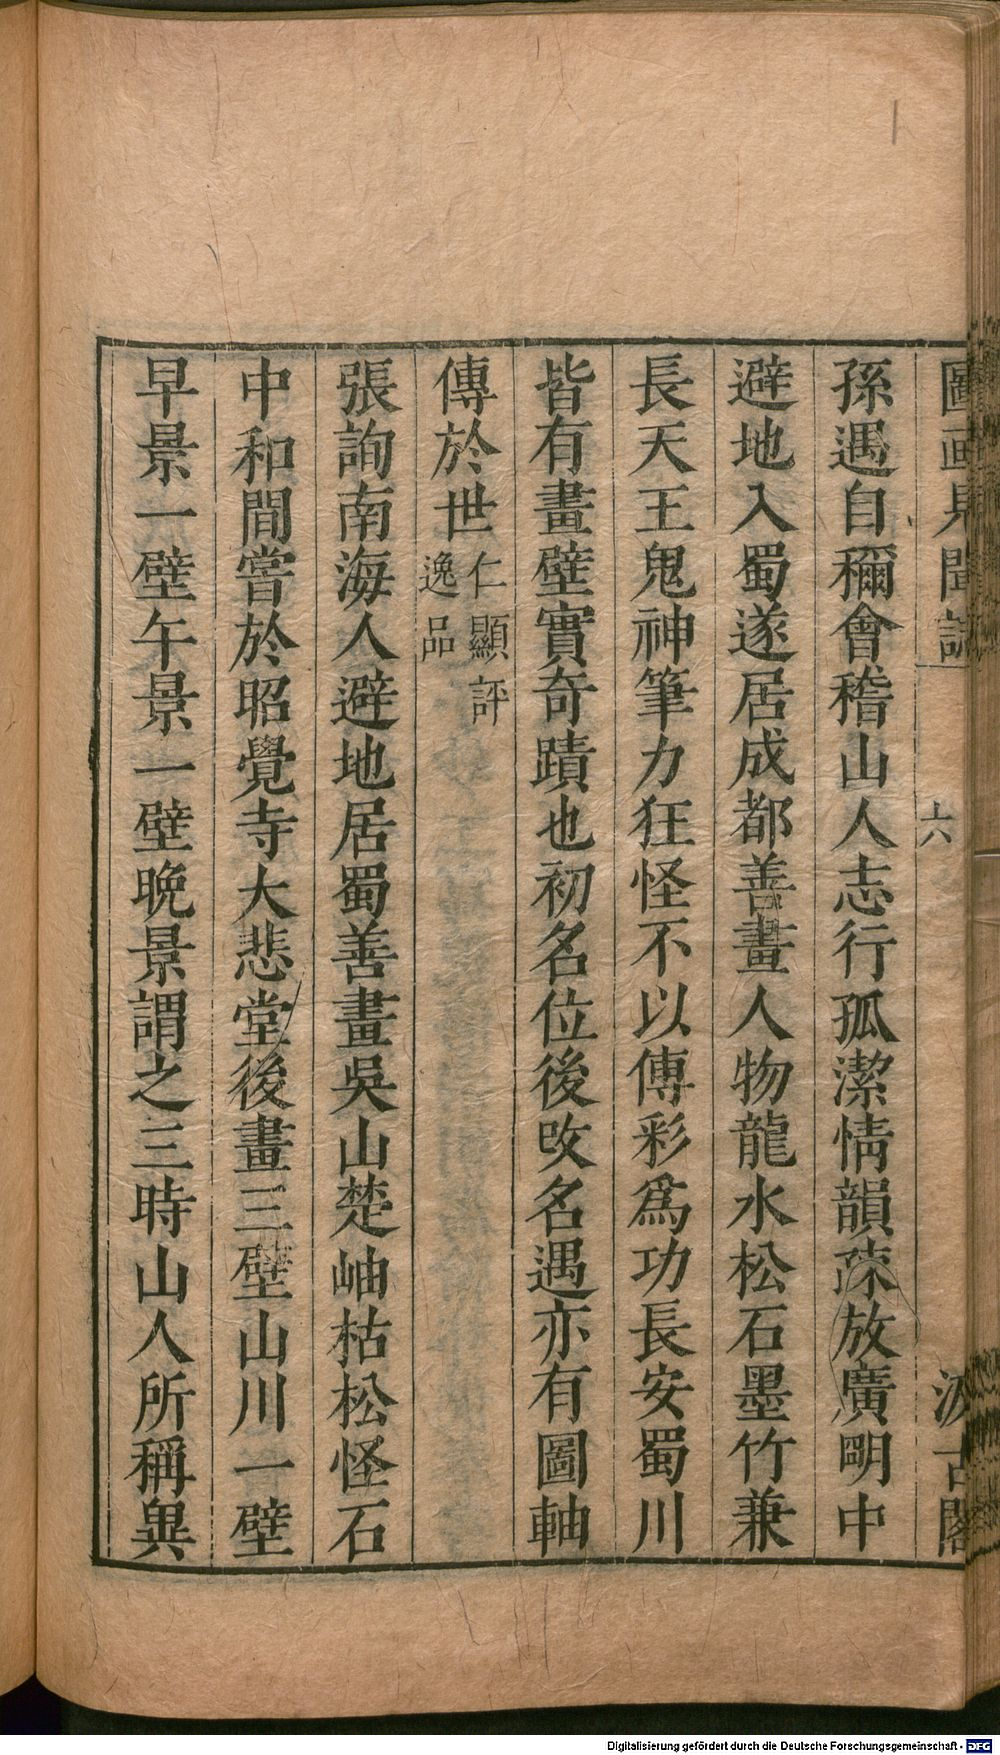 圖画見聞誌
六
汲古閣
孫遇自稱會稽山人志行孤潔情韻疎放廣明中
避地入蜀遂居成都善畫人物龍水松石墨竹兼
長天王鬼神筆力狂怪不以傅彩爲功長安蜀川
皆有畫壁實奇蹟也初名位後改名遇亦有圖軸
傳於世仁顯評
逸品
張詢南海人避地居蜀善畫吳山楚岫枯松怪石
中和間嘗於昭覺寺大悲堂後畫三壁山川一壁
早景一壁午景一壁晚景謂之三時山人所稱異
Digitalisierung gefördert durch die Deutsche Forschungsgemeinschaft - DFG